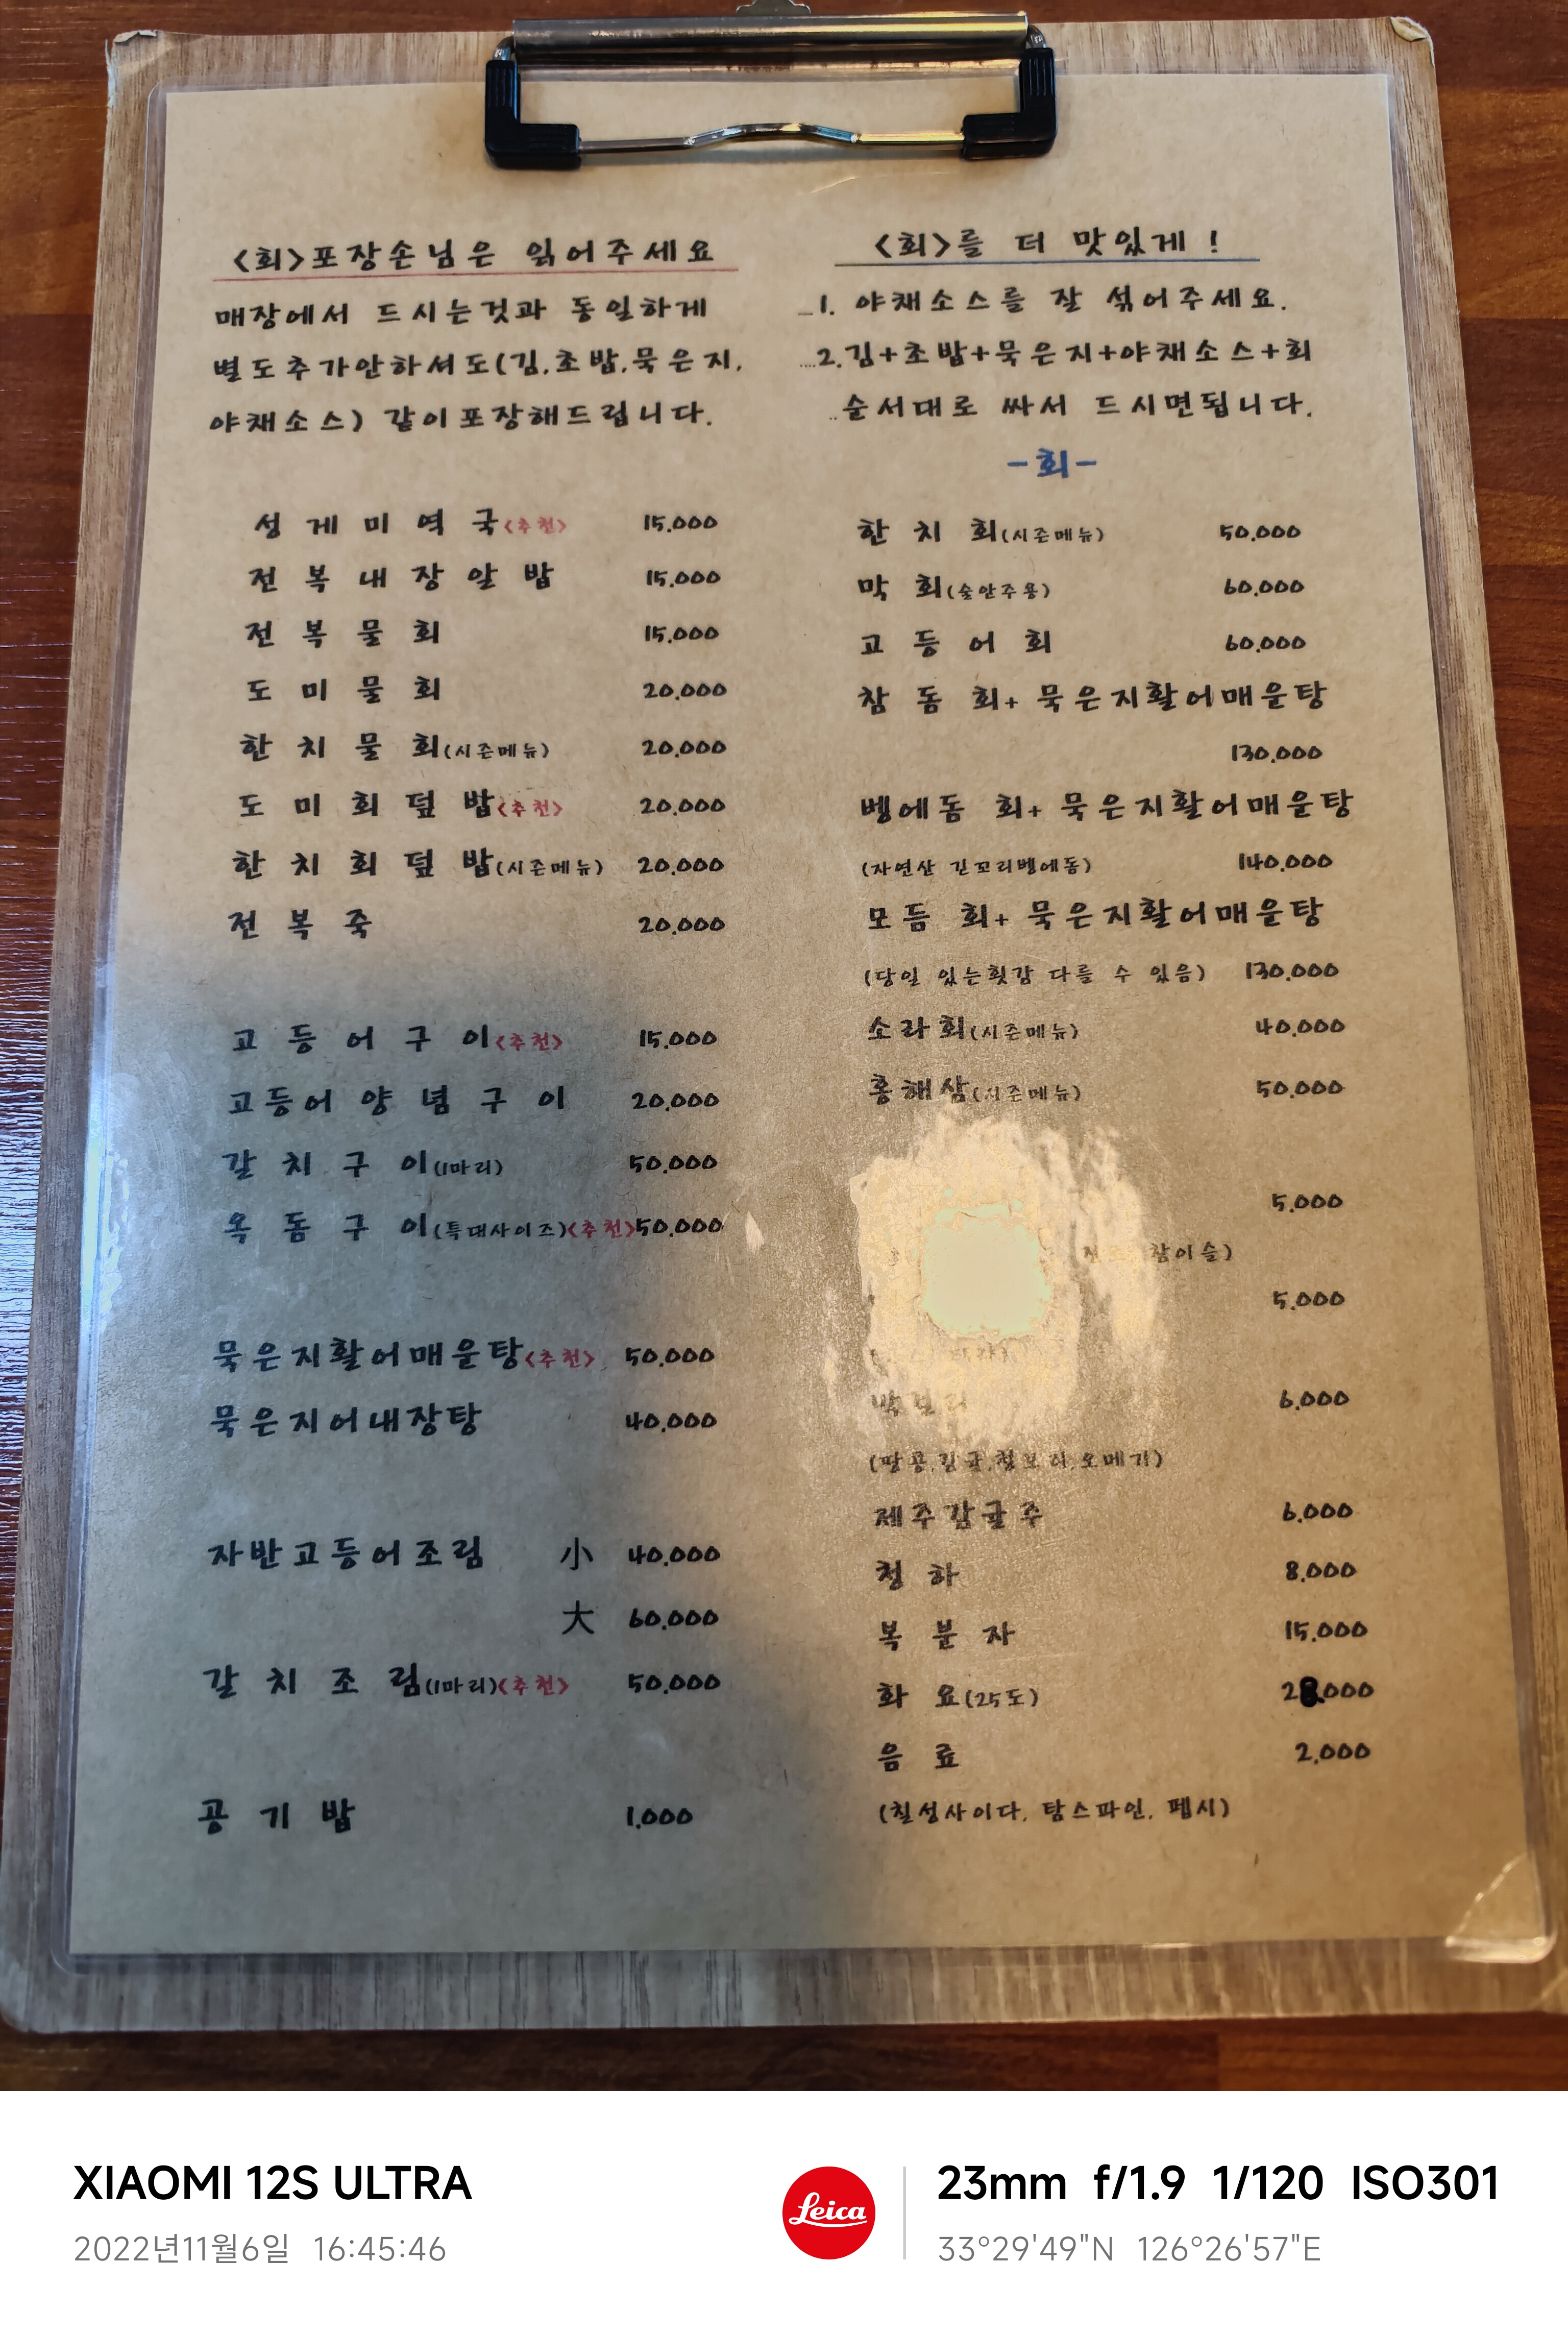 <회>포장손님은 읽어주세요
매장에서 드시는것과 동일하게
별도추가안하셔도(김,초밥,묵은지,
야채소스) 같이포장해드립니다.
성게미역국<추천> 15,000
전복내장알밥 15,000
전복물회 15,000
도미물회 20,000
한치물회(시즌메뉴) 20,000
도미회덮밥<추천> 20,000
한치회덮밥(시즌메뉴) 20,000
전복죽 20,000
고등어구이<추천> 15,000
고등어양념구이 20,000
갈치구이(1마리) 50,000
옥돔구이(특대사이즈)<추천>50,000
묵은지활어매운탕<추천> 50,000
묵은지어내장탕 40,000
자반고등어조림 小 40,000
大 60,000
갈치조림(1마리)<추천> 50,000
공기밥 1,000
<회>를 더 맛있게 !
1. 야채소스를 잘 섞어주세요.
2.김+초밥+묵은지+야채소스+회
순서대로 싸서 드시면됩니다.
-회-
한치회(시즌메뉴) 50,000
막회(술안주용) 60,000
고등어회 60,000
참돔회+ 묵은지활어매운탕
130,000
벵에돔 회+ 묵은지활어매운탕
(자연산 긴꼬리벵에돔) 140,000
모듬 회+ 묵은지활어매운탕
(당일 있는횟감 다를 수 있음) 130,000
소라회(시즌메뉴) 40,000
홍해삼(시즌메뉴) 50,000
5,000
참이슬)
5,000
6,000
(땅콩,감귤,청보리,오메기)
제주감귤주 6,000
청하 8,000
복분자 15,000
화요(25도) 28,000
음료 2,000
(칠성사이다, 탐스파인, 펩시)
XIAOMI 12S ULTRA
2022년11월6일 16:45:46
Leica
23mm f/1.9 1/120 ISO301
33°29'49"N 126°26'57"E